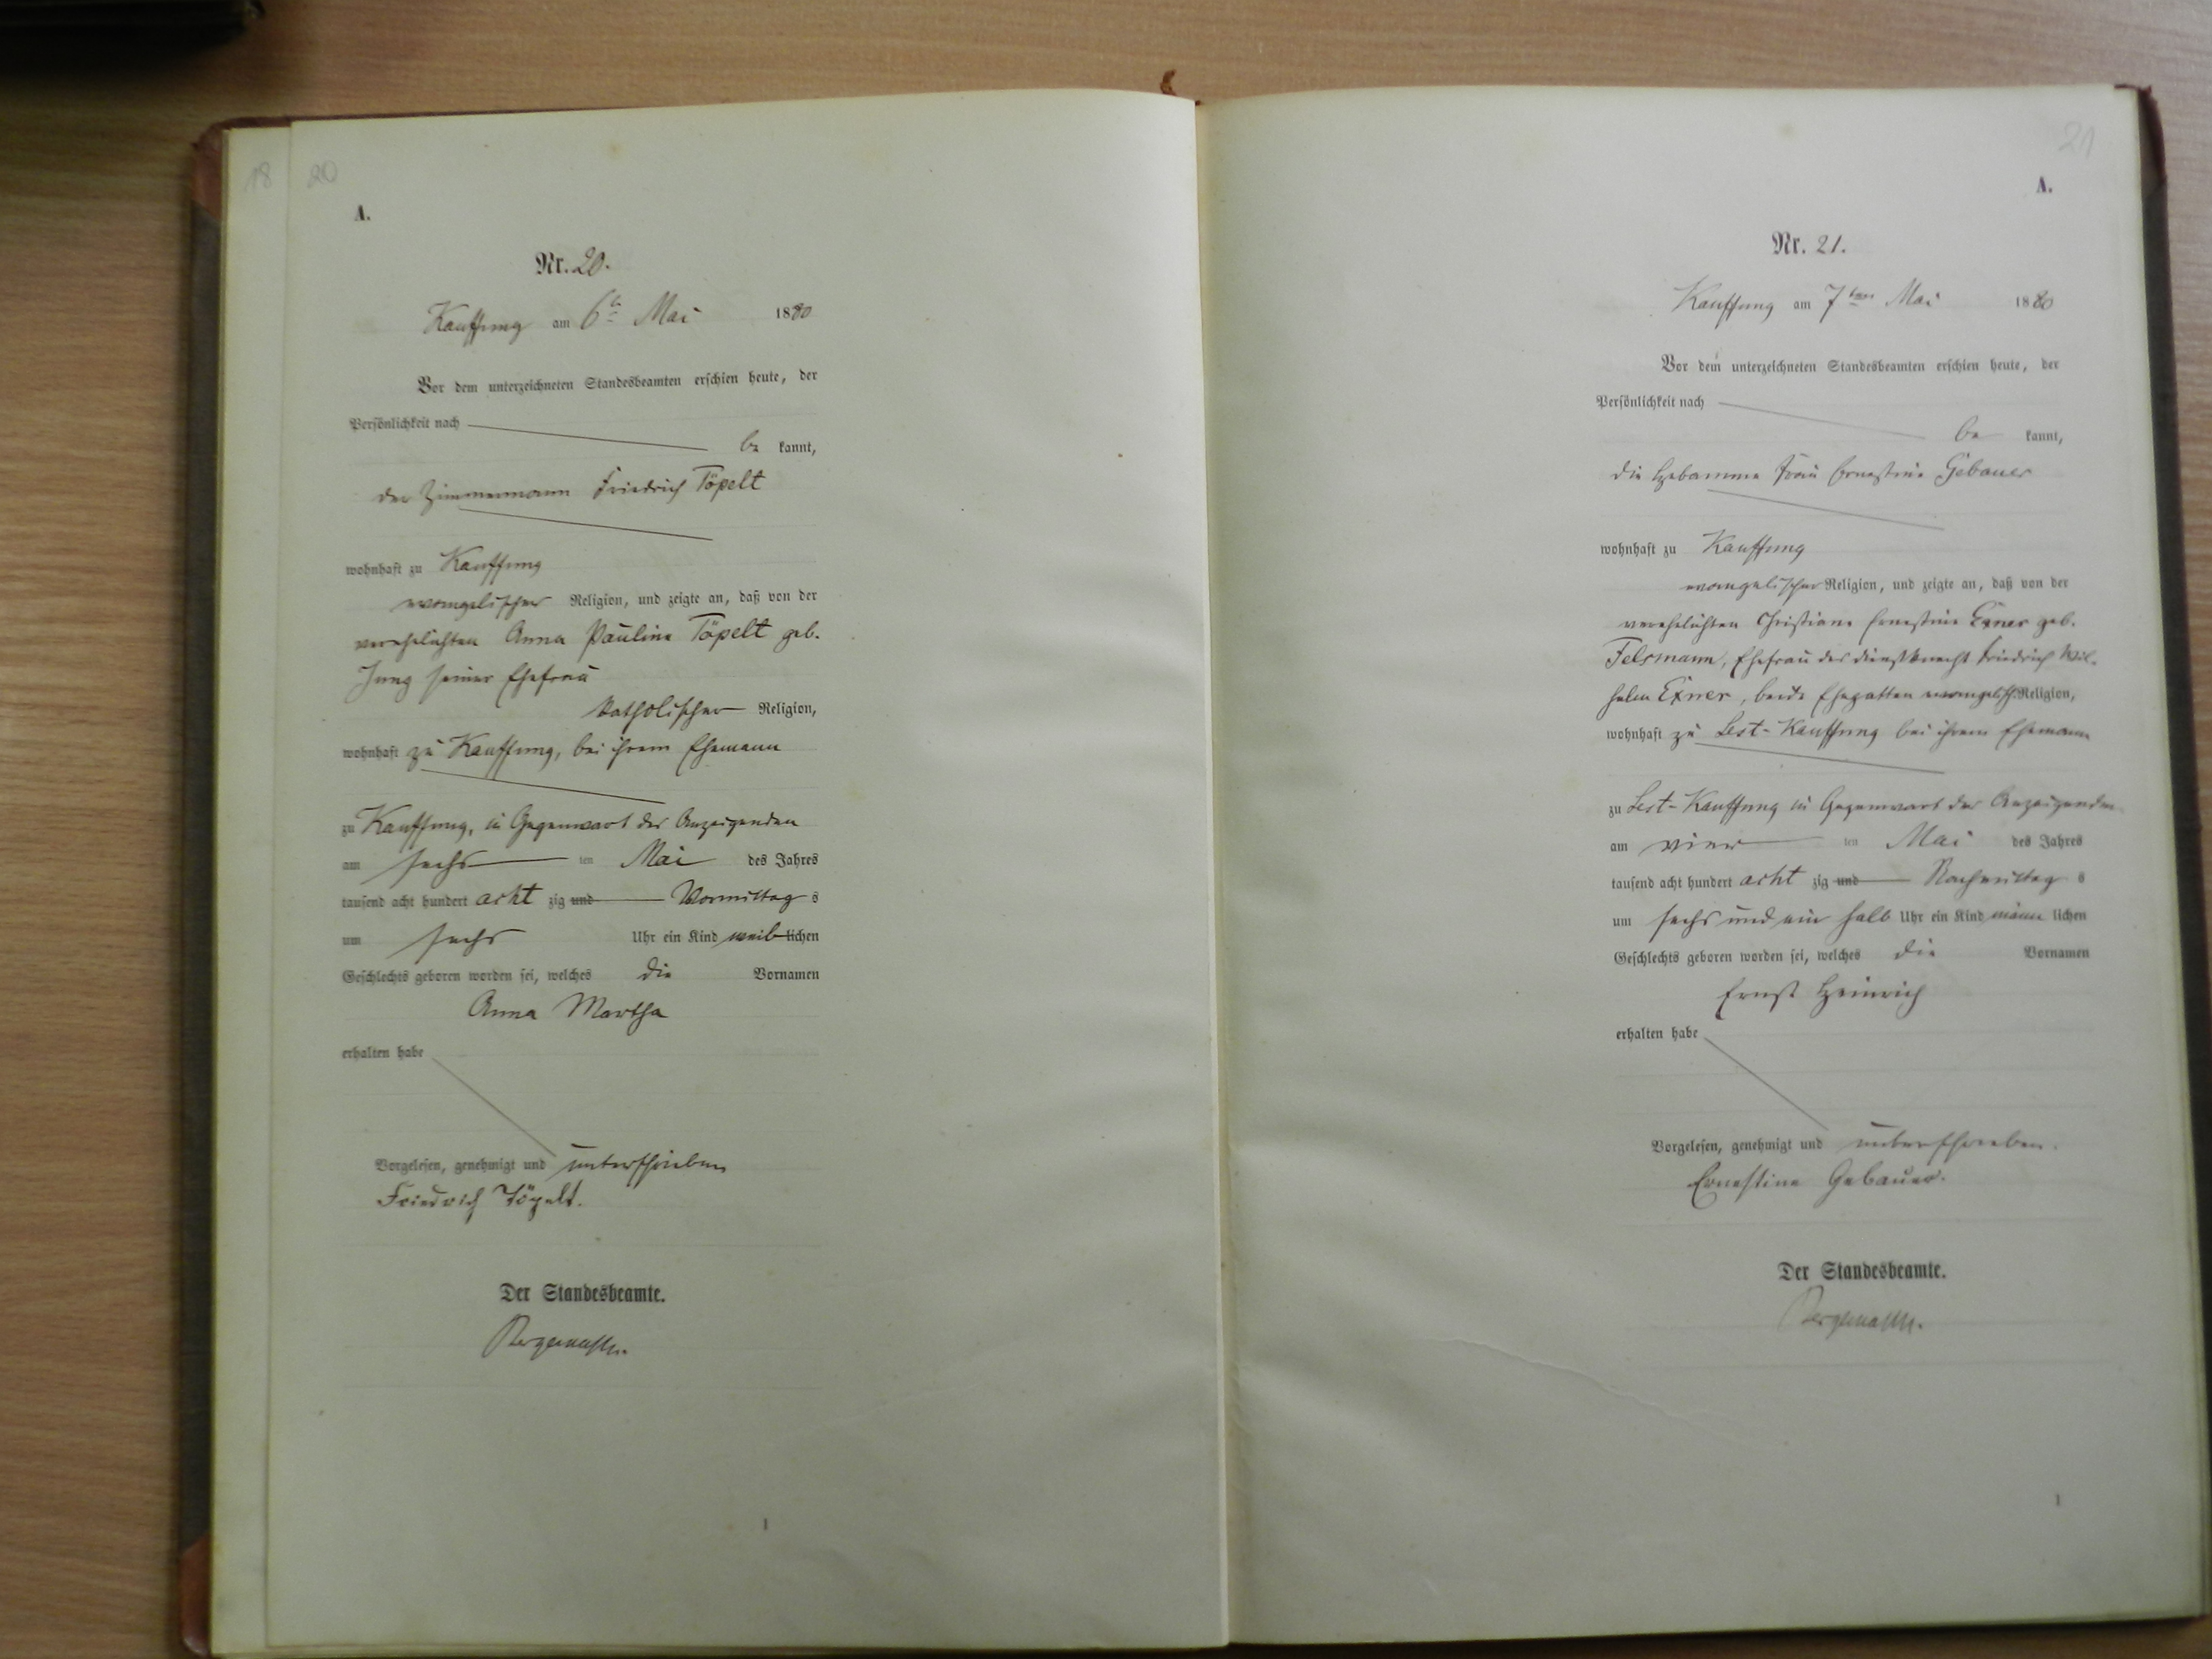 18
20
A.
Nr. 20.
Kauffung am 6ten Mai 1880
Vor dem unterzeichneten Standesbeamten erschien heute, der
Persönlichkeit nach
be kannt,
der Zimmermann Friedrich Töpelt
wohnhaft zu Kauffung
evangelischer Religion, und zeigte an, daß von der
verehelichten Anna Pauline Töpelt geb.
Jung seiner Ehefrau
katholischer Religion,
wohnhaft zu Kauffung, bei ihrem Ehemann
zu Kauffung, in Gegenwart des Anzeigenden
am sechs ten Mai des Jahres
tausend acht hundert acht zig und Vormittag s
um sechs Uhr ein Kind weib lichen
Geschlechts geboren worden sei, welches die Vornamen
Anna Martha
erhalten habe
Vorgelesen, genehmigt und unterschrieben
Friedrich Töpelt.
Der Standesbeamte.
Bergemann.
1
21
A.
Nr. 21.
Kauffung am 7ten Mai 1880
Vor dem unterzeichneten Standesbeamten erschien heute, der
Persönlichkeit nach
be kannt,
die Hebamme Frau Ernestine Gebauer
wohnhaft zu Kauffung
evangelischer Religion, und zeigte an, daß von der
verehelichten Christiane Ernestine Exner geb.
Felsmann, Ehefrau des Dienstknecht Friedrich Wil-
helm Exner, beide Ehegatten evangelisch. Religion,
wohnhaft zu Lest-Kauffung bei ihrem Ehemann
zu Lest-Kauffung in Gegenwart der Anzeigenden
am vier ten Mai des Jahres
tausend acht hundert acht zig und Nachmittag s
um sechs und ein halb Uhr ein Kind männ lichen
Geschlechts geboren worden sei, welches die Vornamen
Ernst Heinrich
erhalten habe
Vorgelesen, genehmigt und unterschrieben.
Ernestine Gebauer.
Der Standesbeamte.
Bergemann.
1